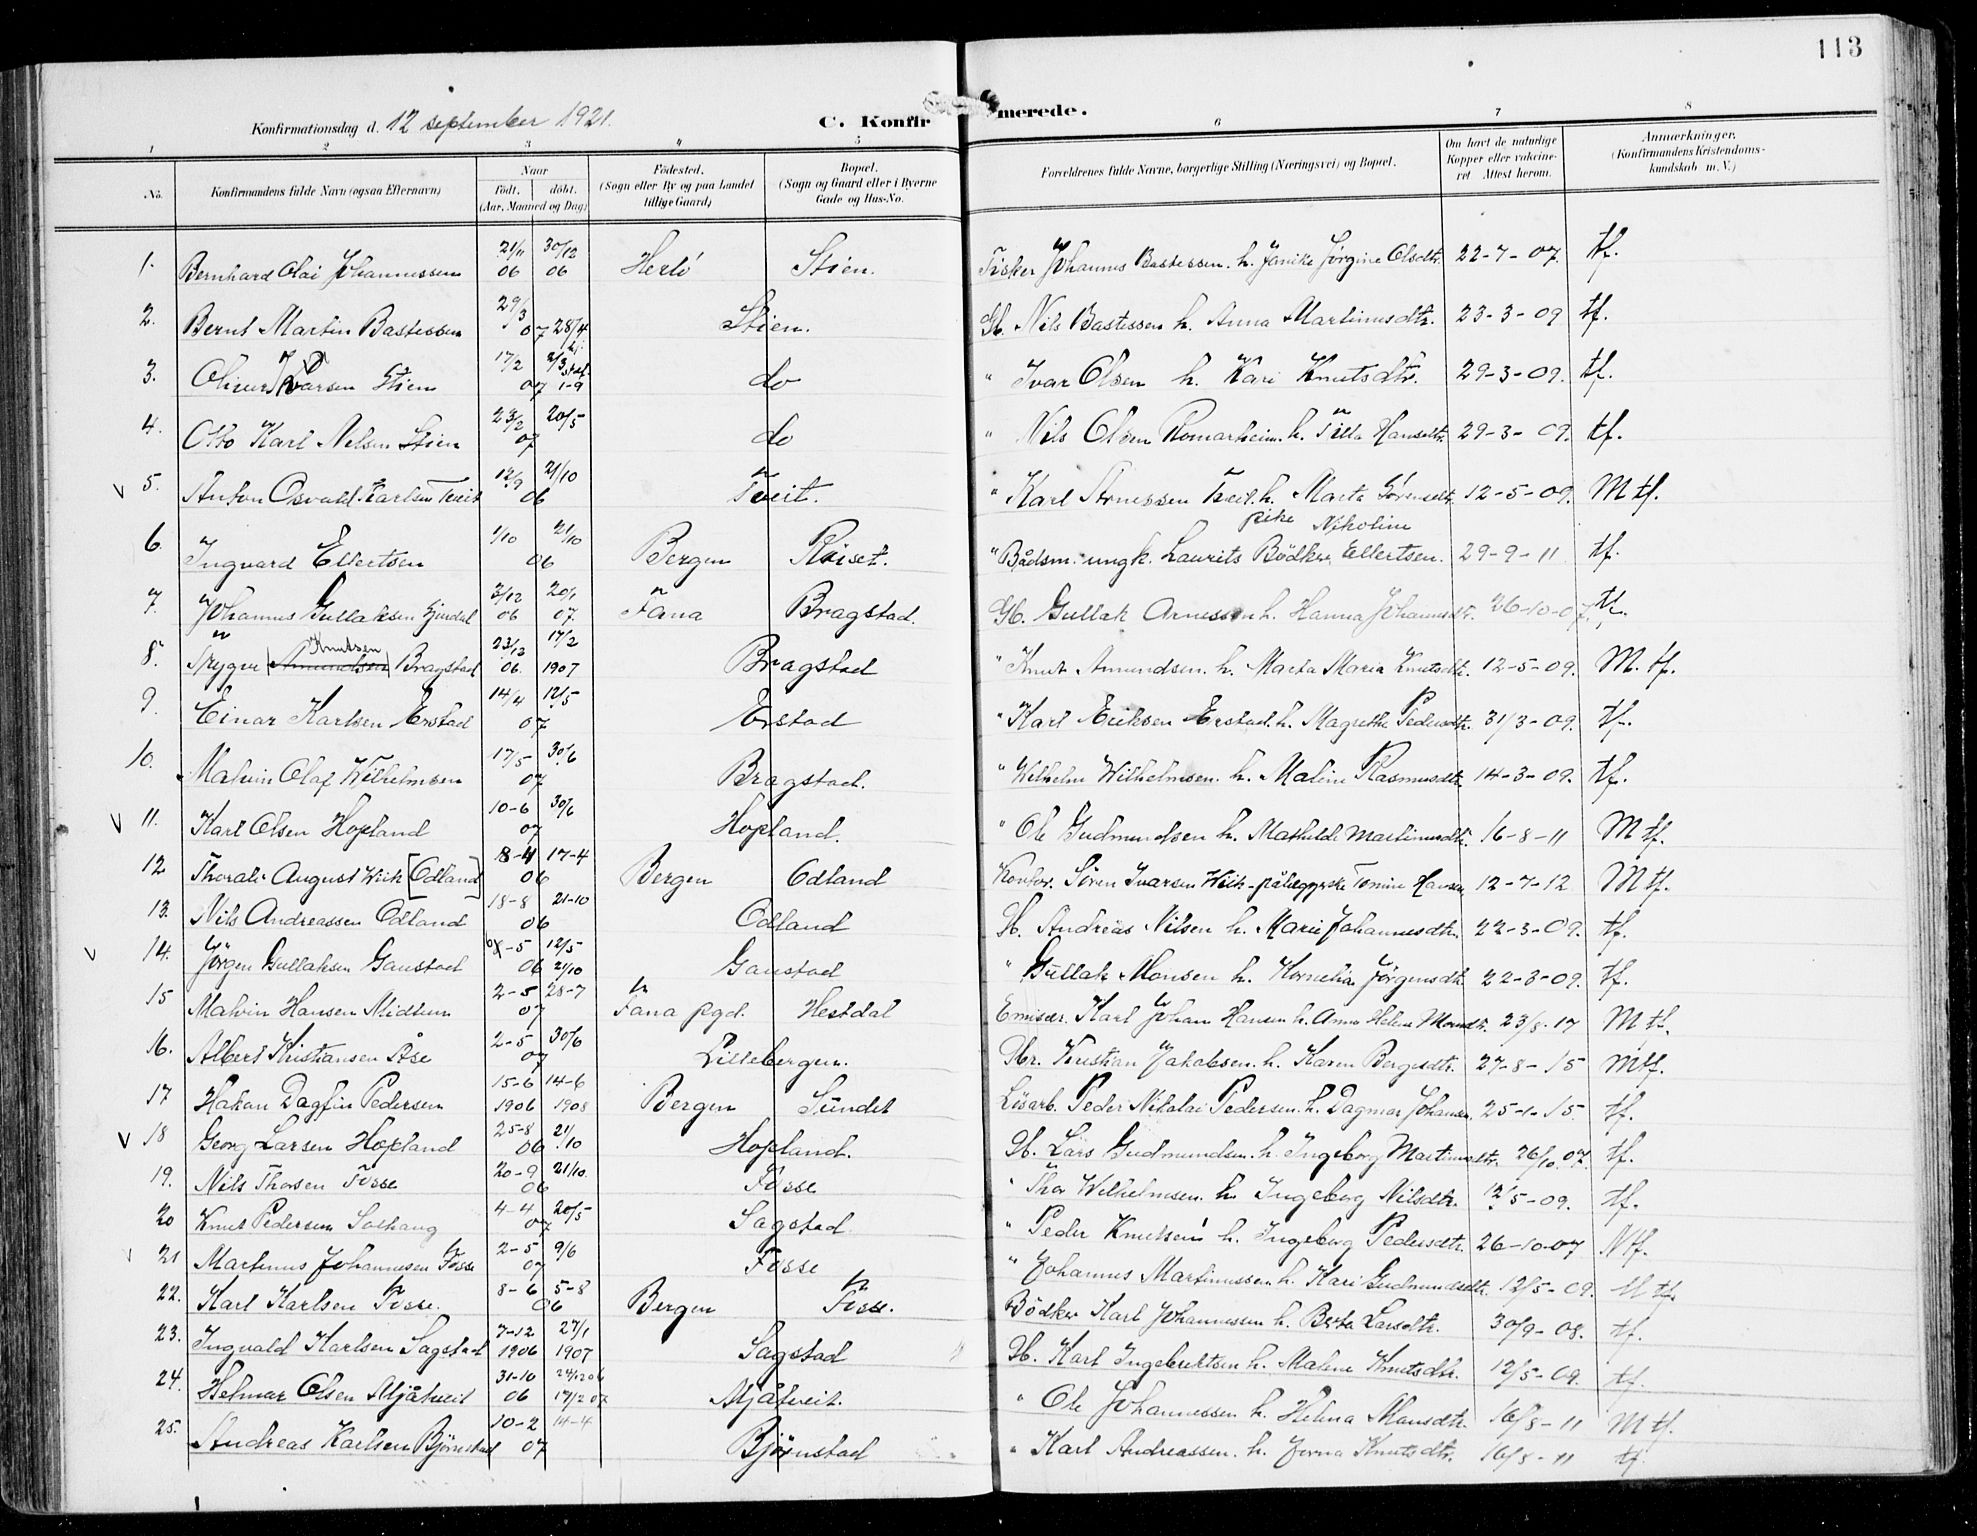 113
Konfirmationsdag d. 12 september 1921. C. Konfirmerede.
1 2 3 4 5 6 7 8
No. Konfirmandens fulde Navn (ogsaa Efternavn) Naar Födt. döbt. (Aar, Maaned og Dag) Födested. (Sogn eller By og paa Landet tillige Gaard) Bopæl. (Sogn og Gaard eller i Byerne Gade og Hus-No. Forældrenes fulde Navne, borgerlige Stilling (Næringsvei) og Bopæl. Om havt de naturlige Kopper eller vakcineret Attest herom. Anmærkninger. (Konfirmandens Kristendomskundskab m. V.)
1. Bernhard Olai Johannessen 21/11 06 30/12 06 Herlö Stien. Fisker Johannes Bastessen. h. Janike Jørgine Olsdtr. 22-7-07. tf.
2. Bernt Martin Bastessen 29/3 07 28/4 Stien. Gb. Nils Bastessen h. Anna Martinusdtr. 23-3-09 tf.
3. Stien 17/2 07 2/3 1-9 do " Ivar Olsen h. Kari Knutsdtr. 29-3-09. tf.
4. Otto Karl Nilsen Stien 23/2 07 20/5 do " Nils Olsen Romarheim. h. Hansdtr. 29-3-09. tf.
5. Anton Osvald Karlsen Tveit 12/9 06 21/10 Tveit. " Karl Arnessen Tveit. h. Marta Sørensdtr. 12-5-09. M tf.
6. Ingvard Ellertsen 1/10 06 21/10 Bergen Röiset. " Bådsm. ungk. Laurits Bödker pike Nikoline Ellertsen. 29-9-11 tf.
7. Johannes Gullaksen 3/12 06 20/1 07. Fana Bragstad. Gb. Gullak Arnesson h. Hanna Johannesdtr. 26-10-07. tf.
8. Trygve Amundsen Knutsen Bragstad 23/12 06. 17/2 1907 Bragstad " Knut Amundsen. h. Marta Maria Knutsdtr. 12-5-09. M. tf.
9 Einar Karlsen Erstad 14/4 07 12/5 Erstad " Karl Eriksen Erstad. h. Magrethe Pedersdtr. 31/3-09. tf.
10. Malvin Olaf Wilhelmsen 17/5 07 30/6 Bragstad. " Wilhelm Wilhelmsen. h. Maline Rasmusdtr. 14-3-09. tf.
11. Karl Olsen Hopland 10-6 07 30/6 Hopland. " Ole Gudmundsen h. Mathilde Martinusdtr. 16-8-11 M tf.
12 Thoralv August Wiik [Odland] 8-4 06 17-4 Bergen Odland Kontor. Sören Ivarsen Wiik - Tomine Hansen 12-7-12 M tf.
13. Nils Andreassen Odland 18-8 06 21-10 Odland Gb. Andreas Nilsen h. Marie Johannesdtr. 22-3-09. tf.
14. Jörgen Gullaksen Ganstad -5 06 12/5 21/10 Ganstad " Gullak Monsen h. Kornelia Jörgensdtr. 22-3-09. tf.
15 Malvin Hansen Midtun 2-5 07 28-7 Fana pgd. Hestdal Emisær. Karl Johan Hansen h. Anna Helene 23/8-17 M tf.
16. Albert Kristiansen Åse 2-5 07 30/6 Lillebergen. Gbr. Kristian Jakobsen. h. Karen Bergesdtr. 27-8-15 M tf.
17 Håkan Dagfin Pedersen 15-6 1906 14-6 1908 Bergen Sundet Lösarb. Peder Nikolai Pedersen. h. Dagmar Johansen 25-1-15 tf.
18 Georg Larsen Hopland 25-8 06 21/10 Hopland. Gb. Lars Gudmundsen. h. Ingeborg Martinusdtr. 26/10.07. tf.
19. Nils Thorsen Fosse 20-9 06 21/10. Fosse " Thor Wilhelmsen. h. Ingeborg Nilsdtr. 12/5-09. tf.
20 Knut Pedersen Solhaug 4-4 07 20/5 Sagstad. " Peder Knutsen h. Ingeborg Pedersdtr. 26-10-07 tf.
21 Martinus Johannesen Fosse 2-5 07 9/6 Fosse " Johannes Martinussen h. Kari Gudmundsdtr. 12/5-09. M tf.
22. Karl Karlsen Fosse. 8-6 06 5-8 Bergen Fosse. Bödker Karl Johannessen h. Berta Larsdtr. 30/9-08. tf.
23. Ingvald Karlsen Sagstad 7-12 1906 27/1 1907 Sagstad Gb. Karl Ingebrektsen h. Maline Knutsdtr. 12/5-09. tf.
24. Helmar Olsen Mjåtveit 31-10 06 17/2 07 Mjåtveit. " Ole Johannessen h. Helena Monsdtr. 16/8-11 M tf.
25. Andreas Karlsen Björnstad 10-2 07 14-4 Björnstad " Karl Andreassen. h. Knutsdtr. 16/8-11 tf.